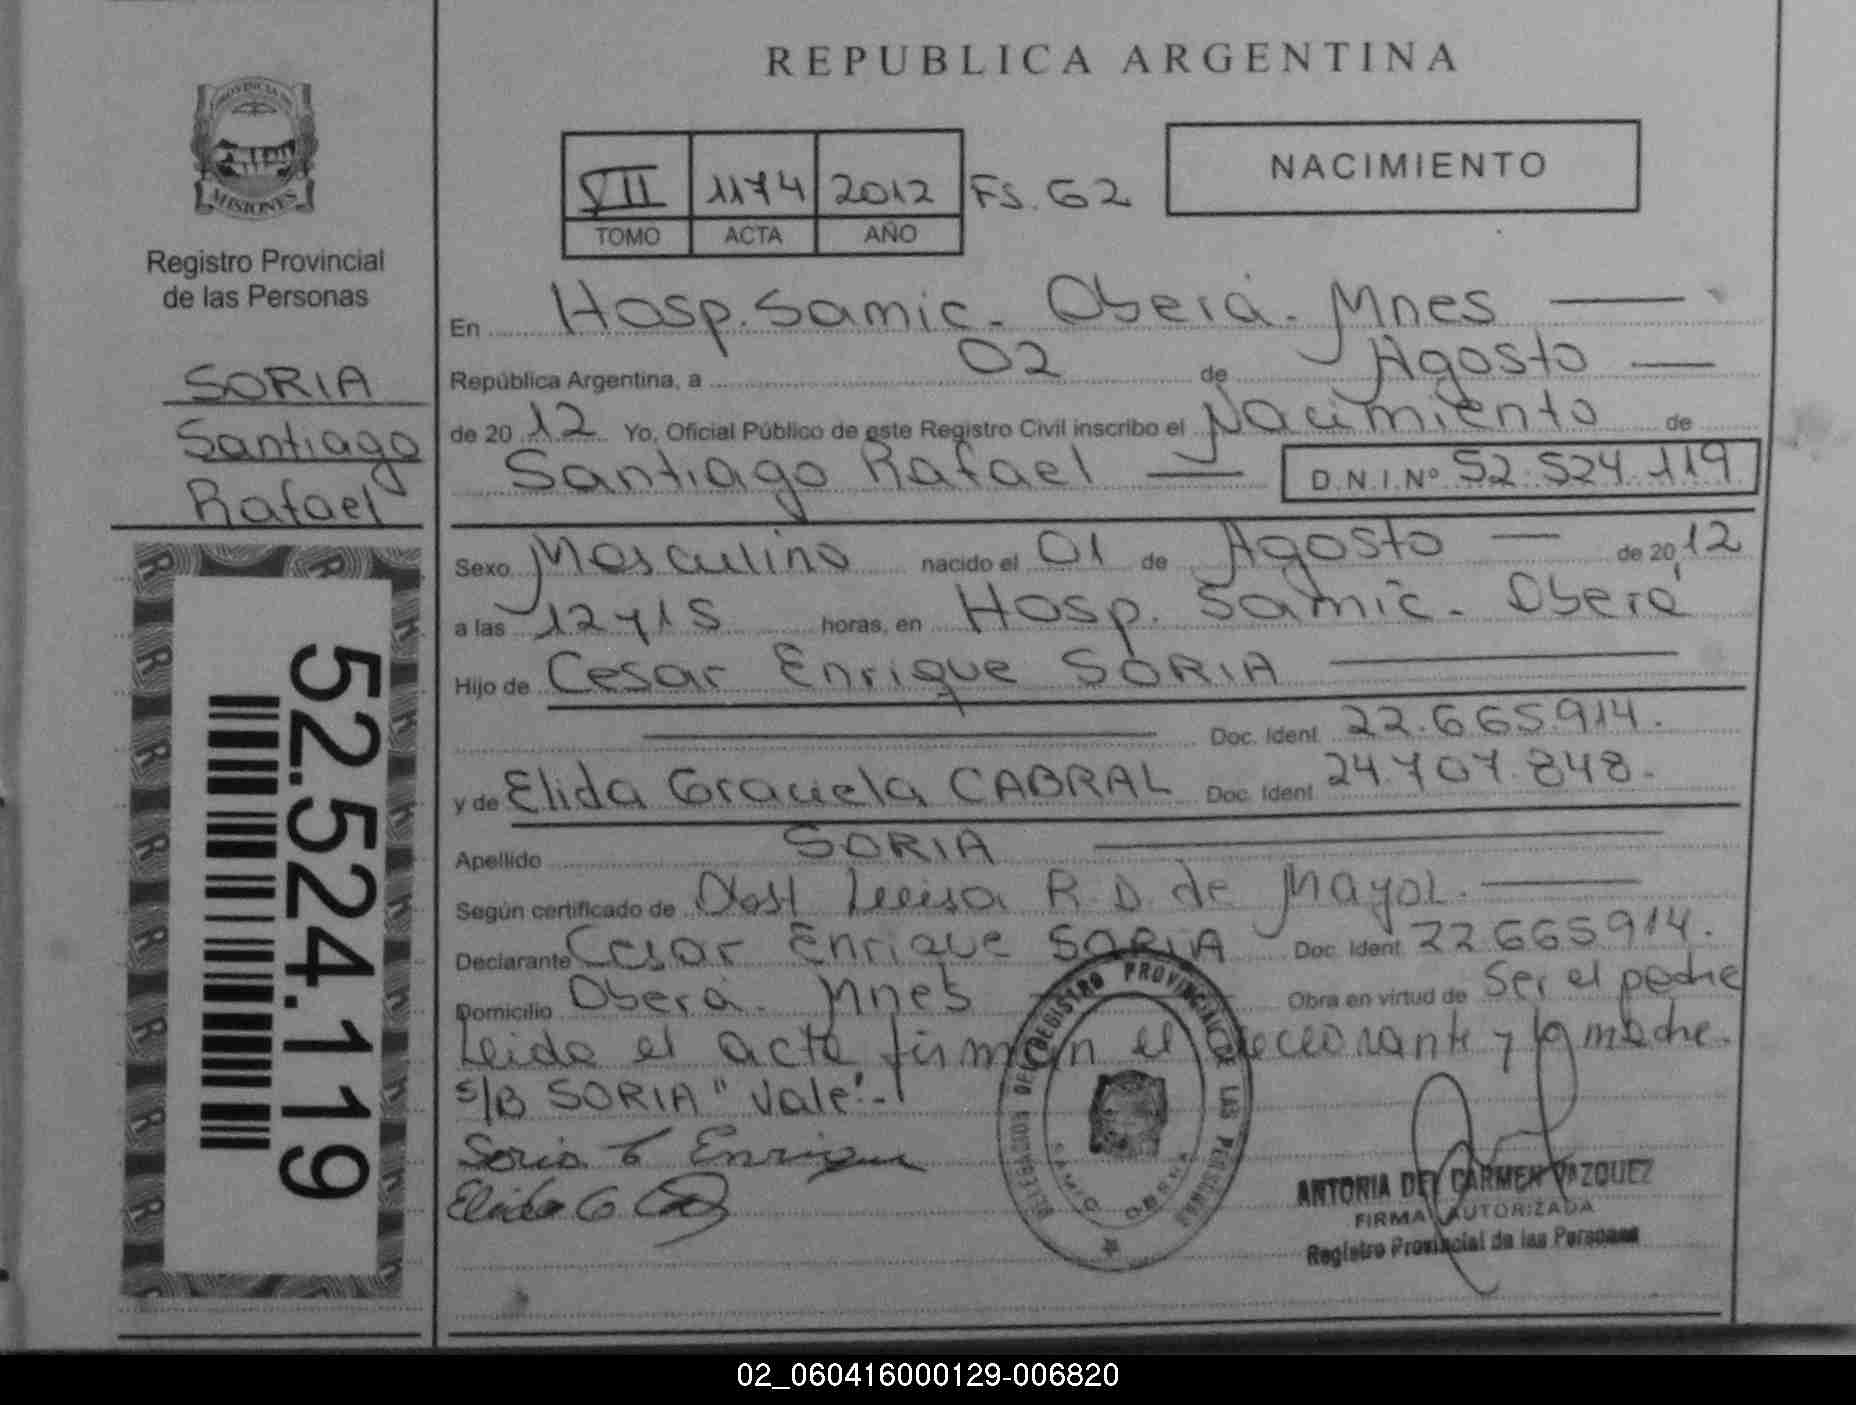 REPUBLICA ARGENTINA
PROVINCIA DE
MISIONES
Registro Provincial
de las Personas
SORIA
Santiago
Rafael
52.524.119
VII 1174 2012 FS. 62
TOMO ACTA AÑO
NACIMIENTO
En Hosp. Samic - Oberá - Mnes
República Argentina, a 02 de Agosto
de 20 12 Yo, Oficial Público de este Registro Civil inscribo el Nacimiento de
Santiago Rafael D.N.I.Nº 52.524.119
Sexo Masculino nacido el 01 de Agosto de 20 12
a las 12 y 15 horas, en Hosp. Samic - Oberá
Hijo de Cesar Enrique SORIA
Doc. Ident. 22.665.914.
y de Elida Graciela CABRAL Doc. Ident. 24.707.848.
Apellido SORIA
Según certificado de Obst Luisa R. D. de Mayol.
Declarante Cesar Enrique SORIA Doc. Ident. 22665914.
Domicilio Oberá - Mnes Obra en virtud de Ser el padre
Leida el acta firman el declarante y la madre.
s/B SORIA "Vale".-
Soria C Enrique
Elida G
DELEGACION DEL REGISTRO PROVINCIAL DE LAS PERSONAS
SAMIC OBERA
ANTONIA DEL CARMEN VAZQUEZ
FIRMA AUTORIZADA
Registro Provincial de las Personas
02_060416000129-006820